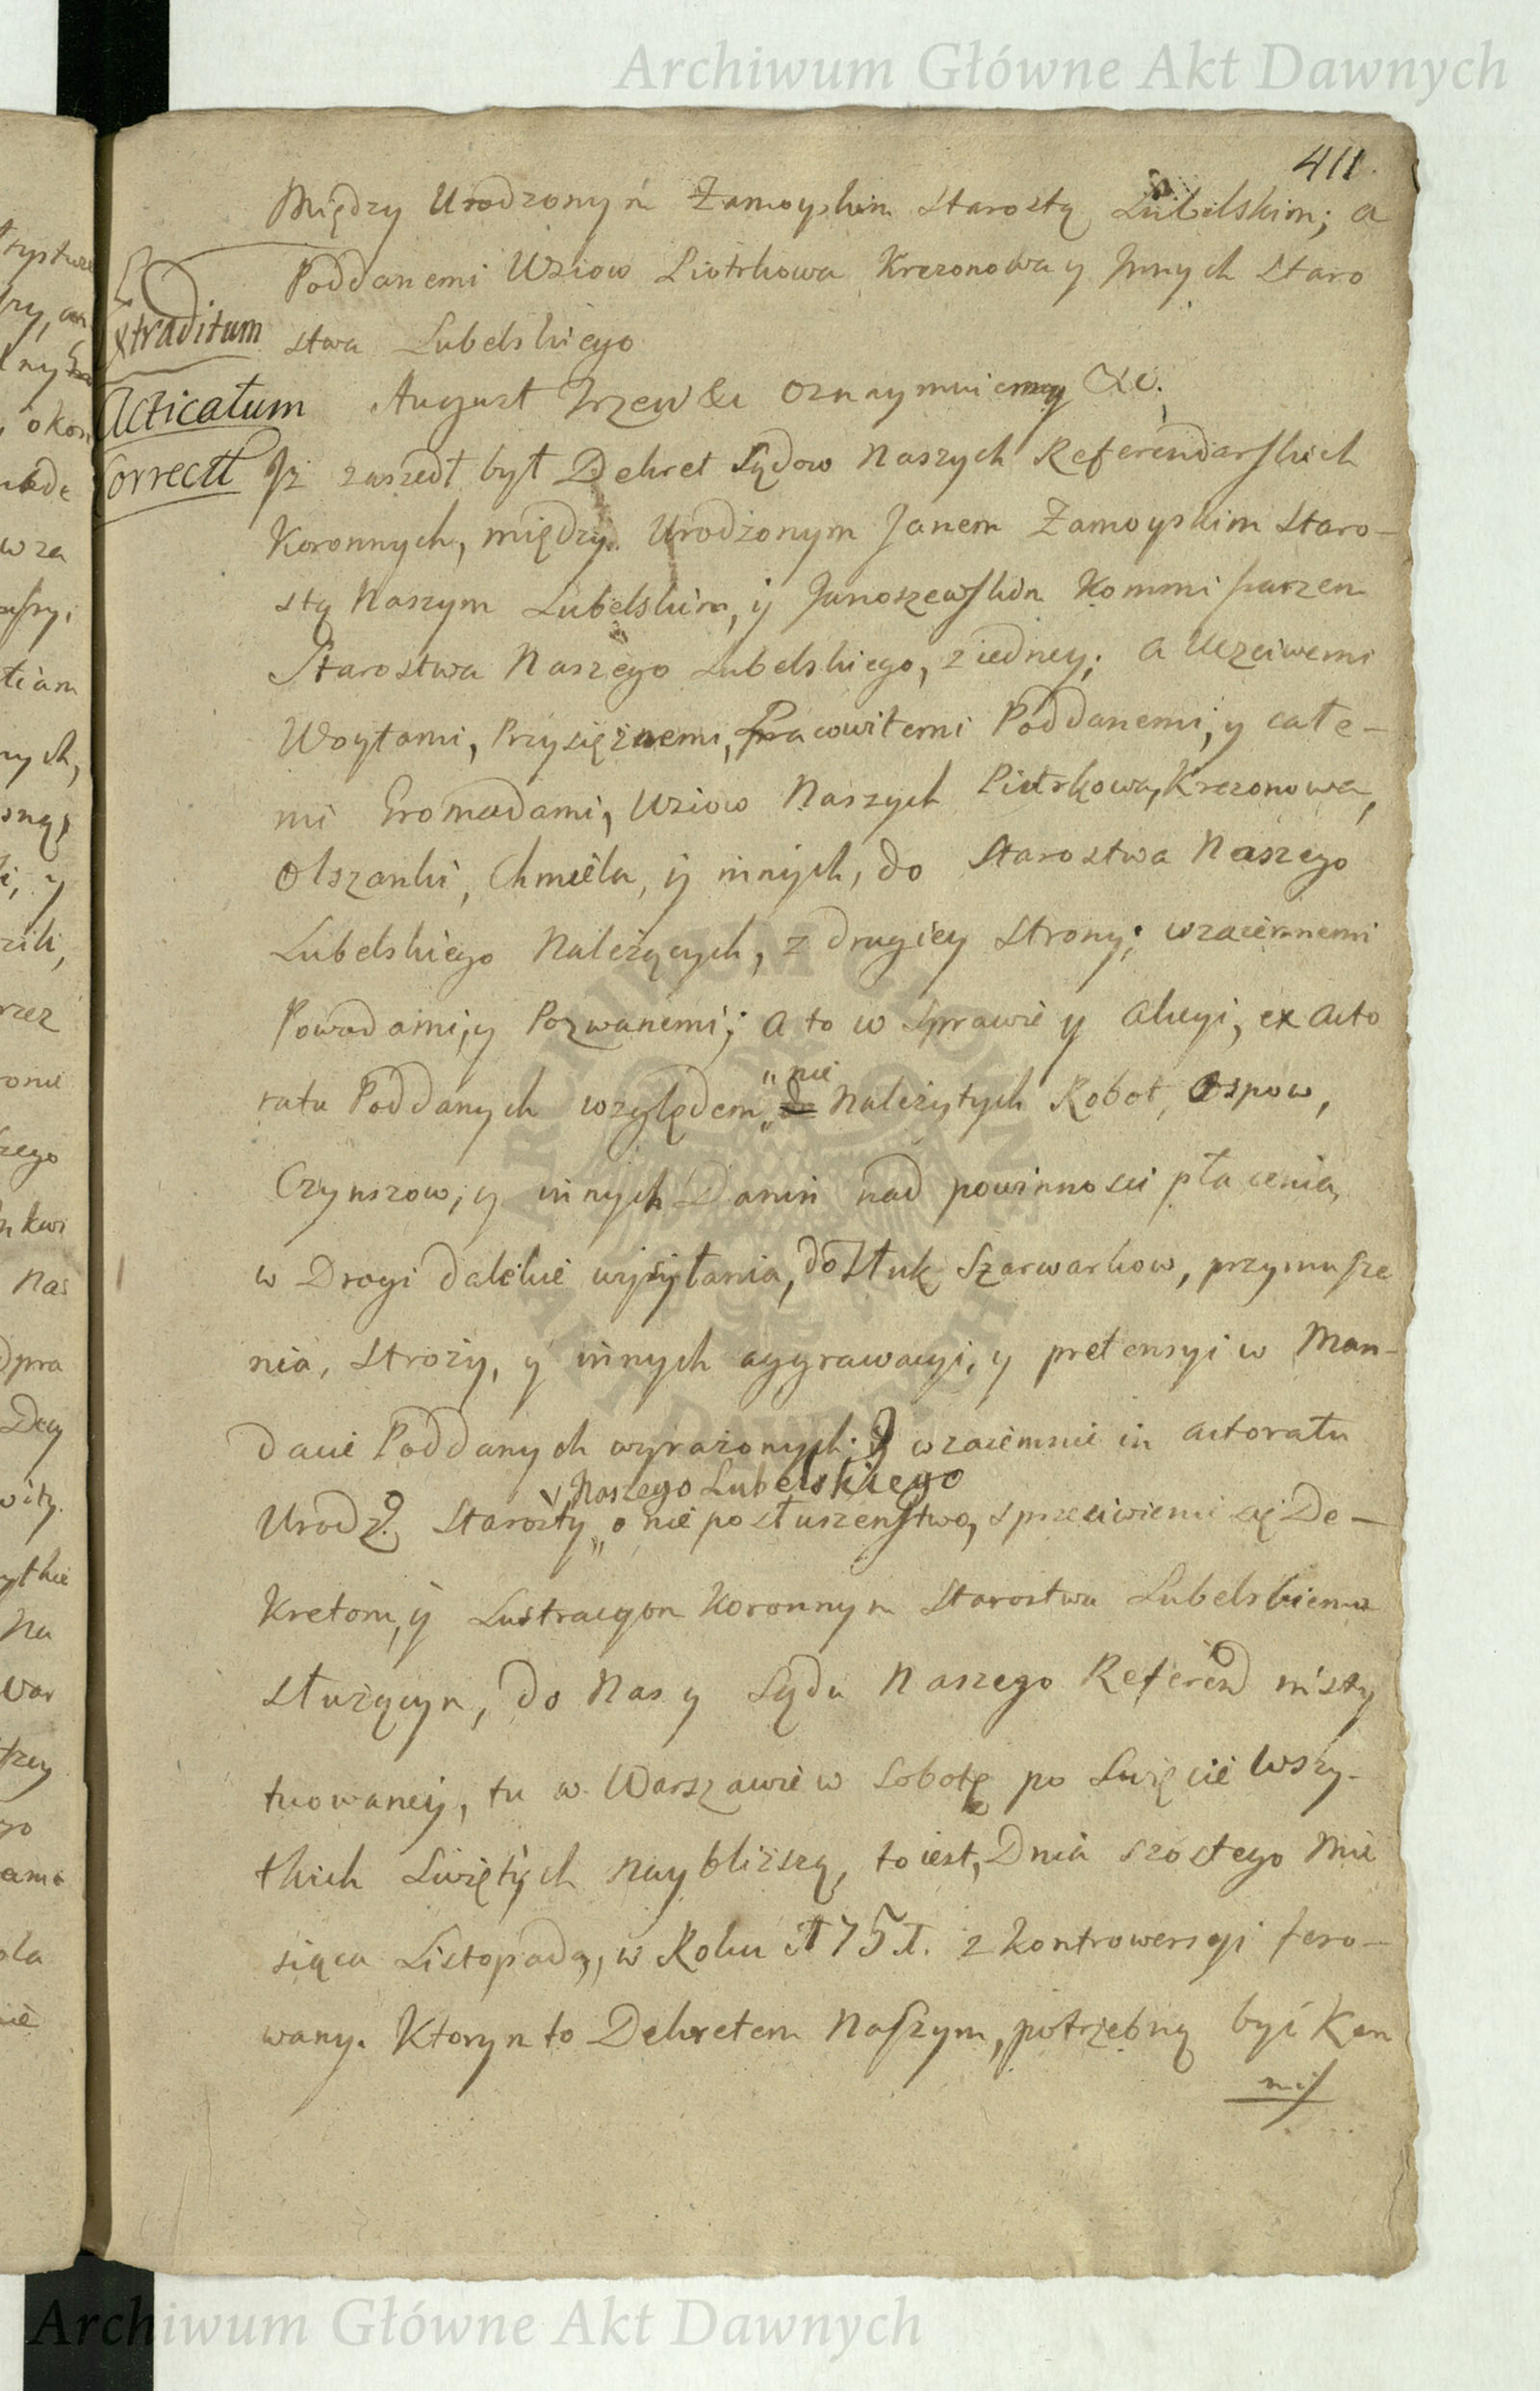 Archiwum Główne Akt Dawnych
411.
Między Urodzonym Zamoyskim Starostą Lubelskim; a
Poddanemi Wsiow Piotrkowa Krezonowa y Jnnych Staro
stwa Lubelskiego
Extraditum
Acticatum
Correct
August Trzeci &c Oznaymuiemy &c.
Jż zaszedł był Dekret Sądow Naszych Referendarskich
Koronnych, między Urodzonym Janem Zamoyskim Staro-
stą Naszym Lubelskim, y Janoszewskim Kommissarzem
Starostwa Naszego Lubelskiego, z iedney; a Uczciwemi
Woytami, Przysiężnemi, Pracowitemi Poddanemi, y całe-
mi Gromadami, Wsiow Naszych Piotrkowa, Krezonowa,
Olszanki, Chmiela, y innych, do Starostwa Naszego
Lubelskiego Należących, z drugiey Strony; wzaiemnemi
Powodami, y Pozwanemi; a to w Sprawie y Akcyi, ex Acto
ratu Poddanych względem nie Należytych Robot, Ospow,
Czynszow, y innych Danin nad powinnosci płacenia,
w Drogi dalekie wysyłania, do Stuk Szarwarkow, przymusze
nia, Stroży, y innych aggrawacyi, y pretensyi w Man-
dacie Poddanych wyrażonych; Y wzaiemnie in actoratu
Naszego Lubelskiego
Urodz. Starosty o nie posłuszenstwo, sprzeciwienie się De-
kretom, y Lustracyom Koronnym Starostwu Lubelskiemu
służącym, do Nas y Sądu Naszego Referend insty
tuowaney, tu w Warszawie w Sobotę po Święcie Wszy-
tkich Swiętych naybliższą, to iest, Dnia szostego Mie
siąca Listopada, w Roku 1751. z kontrowersyi fero-
wany. Ktorym to Dekretem Naszym, potrzebną być Kom
mis
Archiwum Główne Akt Dawnych